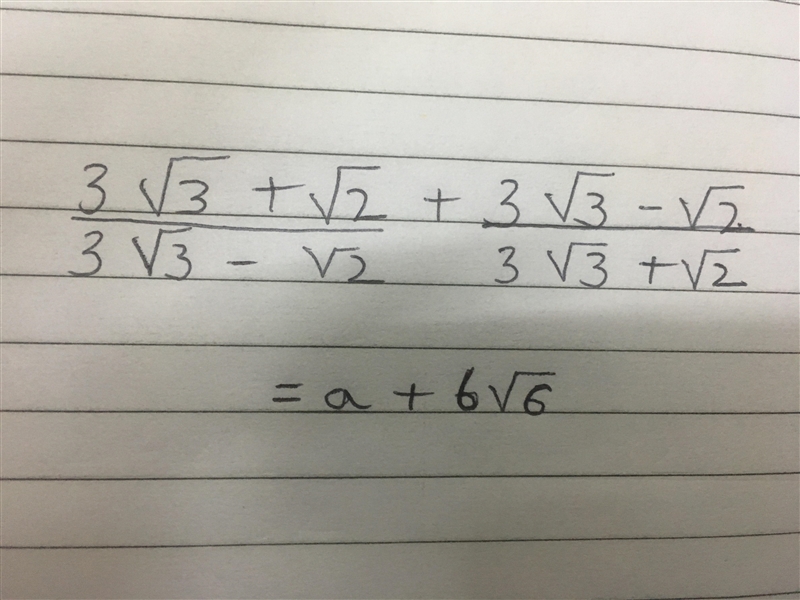 (3√3 + √2)/(3√3 - √2) + (3√3 - √2)/(3√3 + √2)
= a + b√6